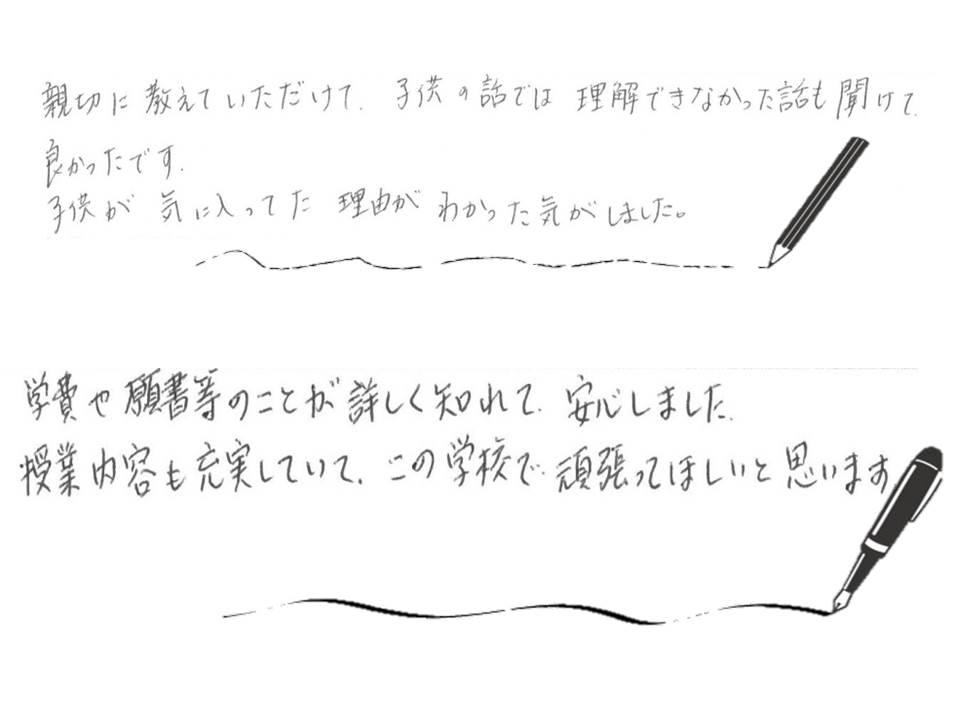 親切に教えていただけて、子供の話では理解できなかった話も聞けて、
良かったです。
子供が気に入ってた理由がわかった気がしました。
学費や願書等のことが詳しく知れて、安心しました。
授業内容も充実していて、この学校で頑張ってほしいと思います